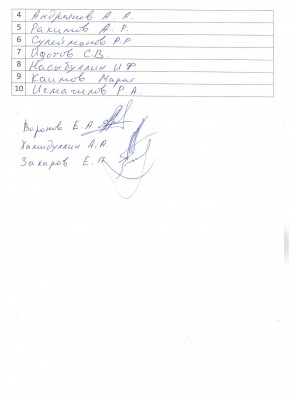 4 Андрянов А. А.
5 Рахимов А. Р.
6 Сулейманов Р.Р.
7 С.В.
8 Насыбуллин И.Ф
9 Каимов Марат
10 Исмачилов Р.А.
Воронов Е.А.
Халидуллин А.А.
Захаров Е.П.